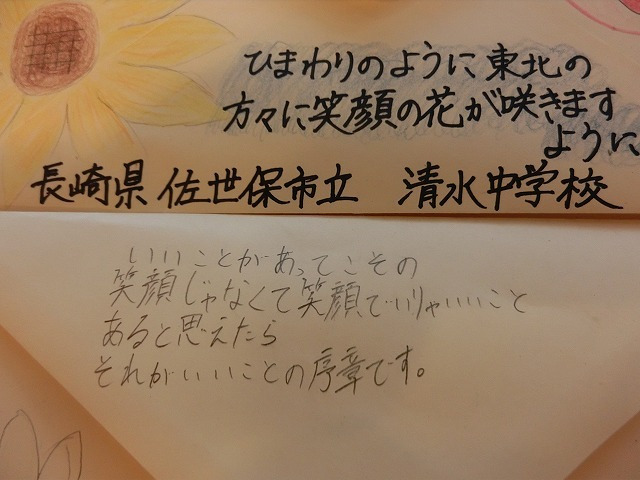 ひまわりのように東北の
方々に笑顔の花が咲きます
ように
長崎県 佐世保市立 清水中学校
いいことがあってこその
笑顔じゃなくて笑顔でいりゃいいこと
あると思えたら
それがいいことの序章です。